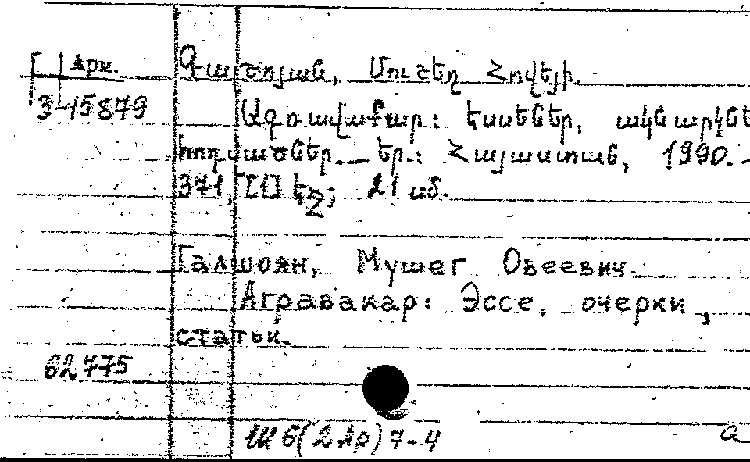 Арм. Գալշոյան, Մուշեղ Հովեյի.
3-15879 Ագռավաքար: Էսսեներ, ակնարկնե
հոդվածներ. _ Եր.: Հայաստան, 1990. -
371, [1] էջ; 21 սմ.
Галшоян, Мушег Овеевич.
Агравакар: Эссе, очерки,
статьи.
62775
Ш6(2Ар)7-4
а